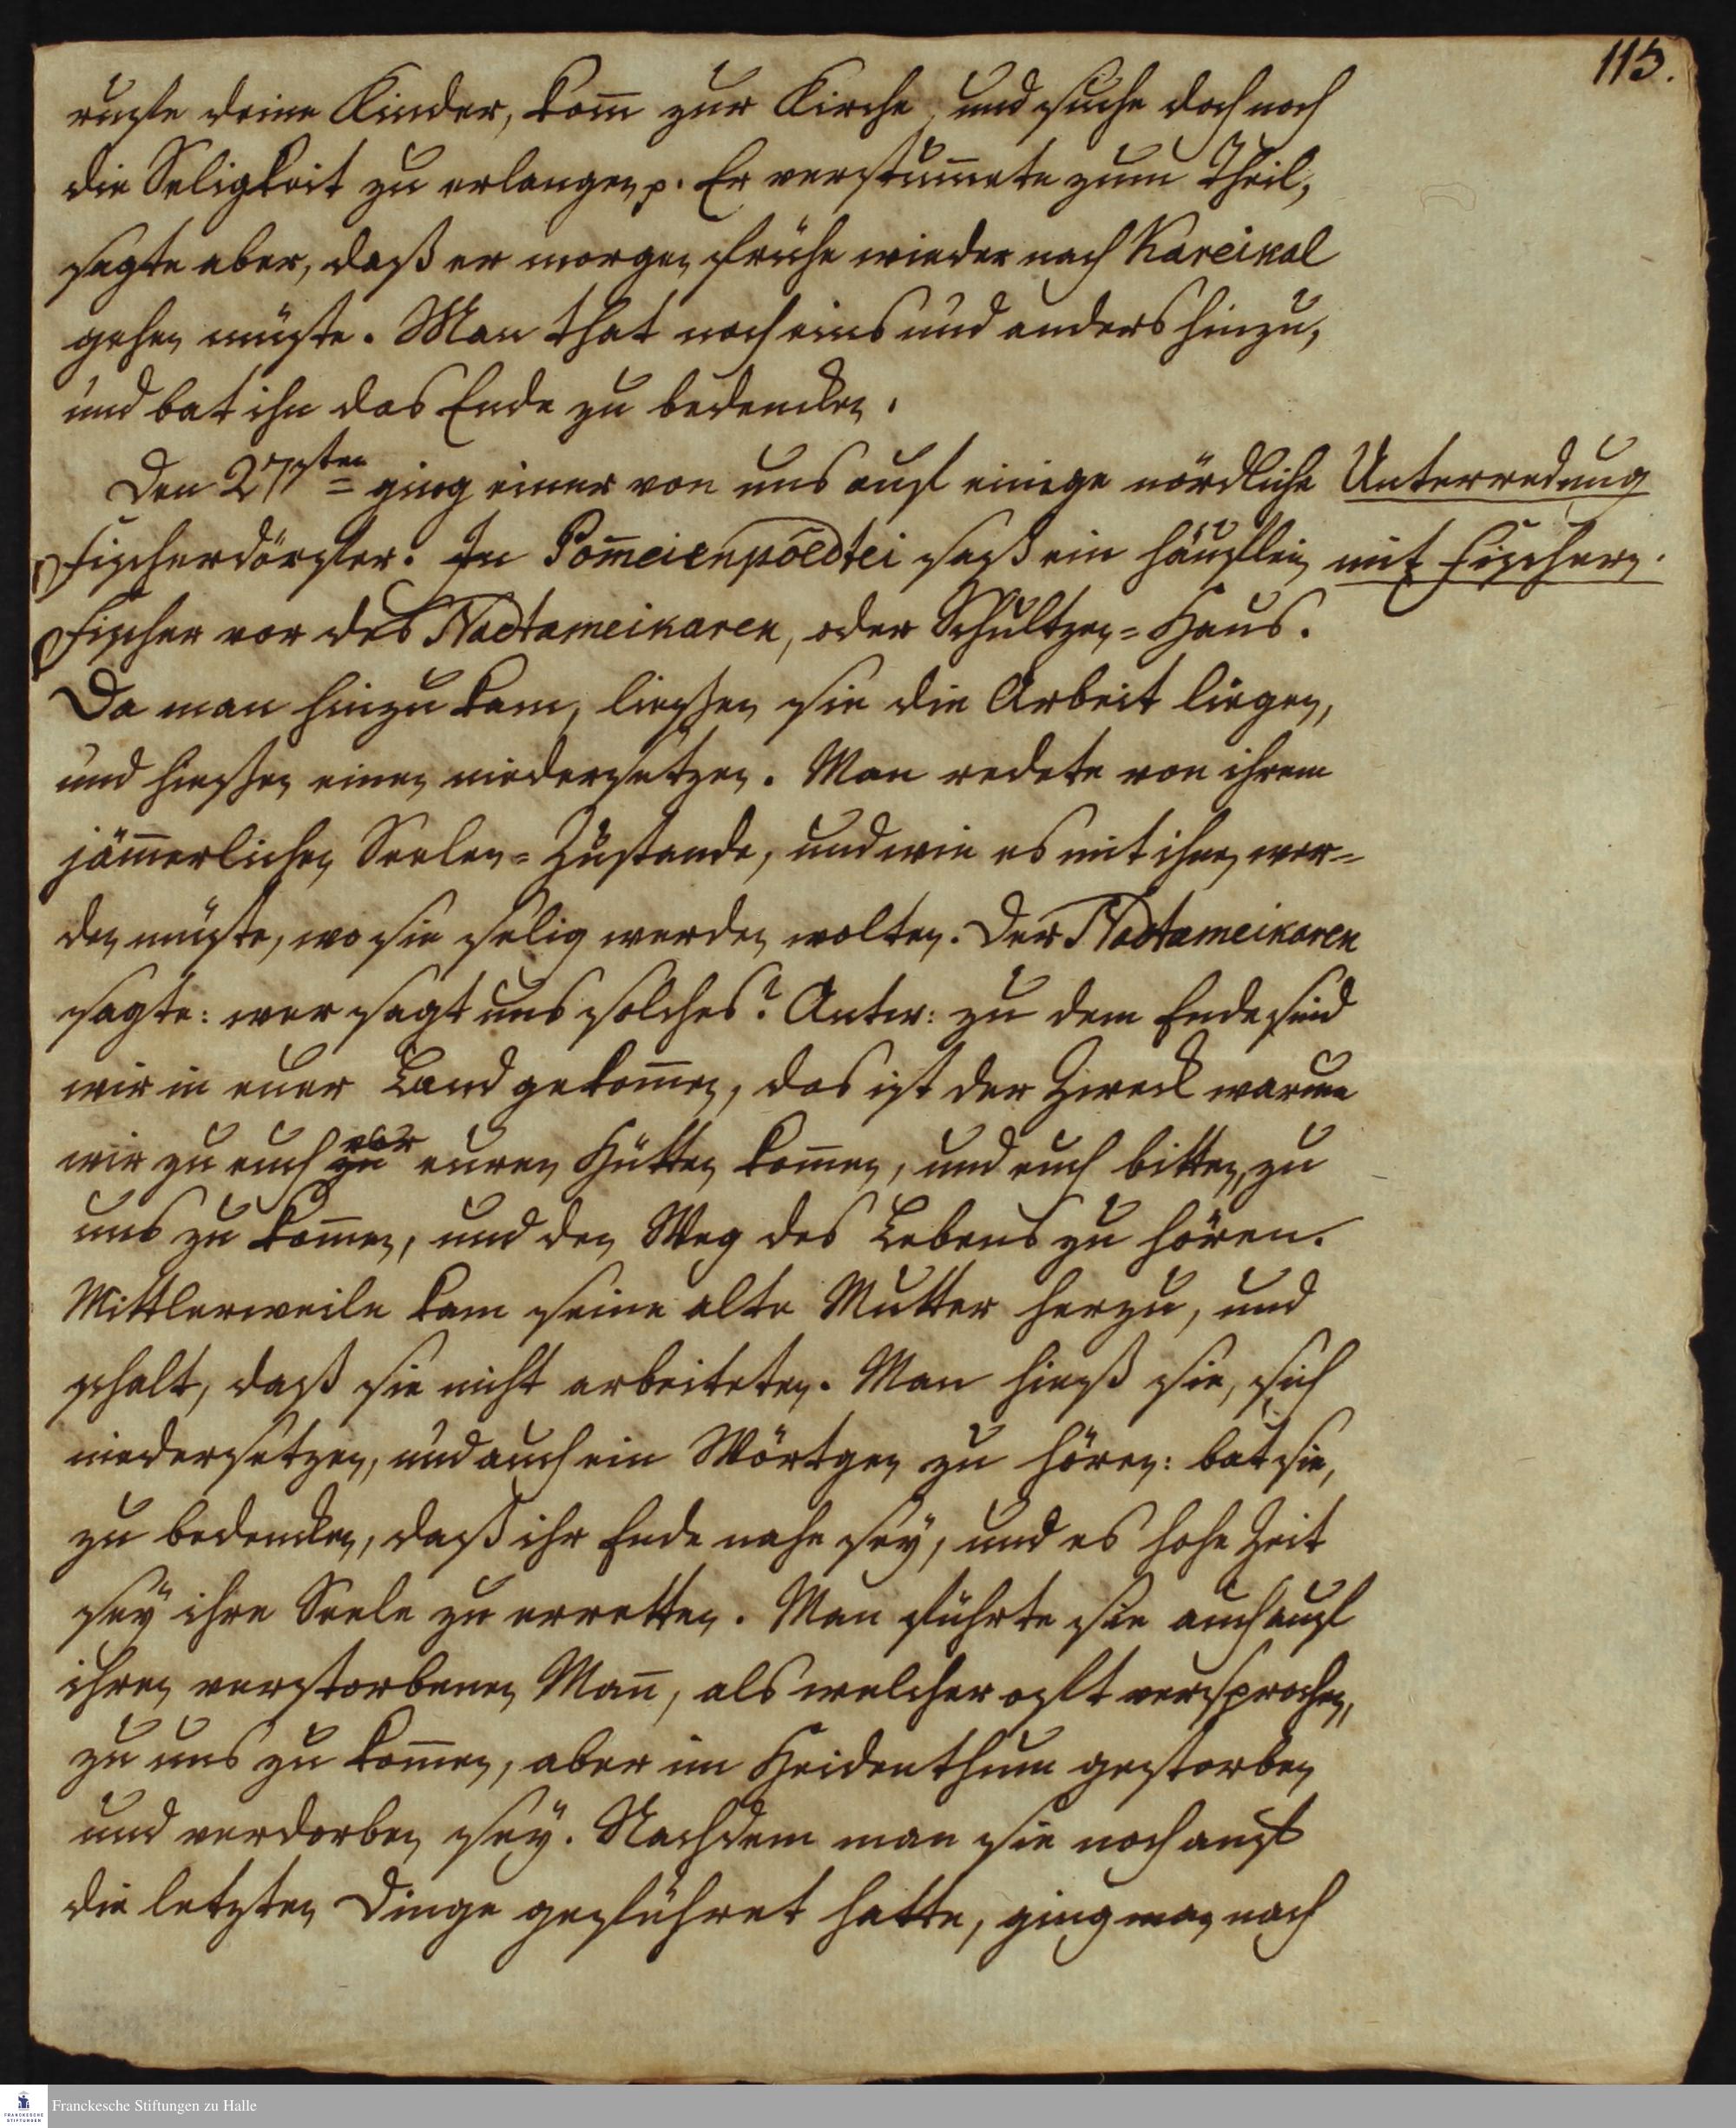 113.
rufe deine Kinder, kom̄ zur Kirche, und suche doch noch
die Seligkeit zu erlangen p. Er verstum̄ete zum Theil,
sagte aber, daß er morgen frühe wieder nach Kareikal
gehen müste. Man that noch eins und anders hinzu,
und bat ihn das Ende zu bedencken.
Den 27sten ging einer von uns auf einige nördliche
Unterredung
Fischerdörfer. In Pom̄eienpöedtei saß ein häuflein
mit Fischern.
Fischer vor des Nadtameikaren, oder Schultzen-Haus.
Da man hinzu kam, liessen sie die Arbeit liegen,
und hiessen einen niedersetzen. Man redete von ihrem
jäm̄erlichen Seelen-Zustande, und wie es mit ihnen wer-
den müste, wo sie selig werden wolten. Der Nadtameikaren
sagte: wer sagt uns solches? Antw: zu dem Ende sind
wir in euer Land gekom̄en, das ist der Zweck warum
wir zu euch zu euren Hütten kom̄en, und euch bitten, zu
uns zu kom̄en, und den Weg des Lebens zu hören.
Mittlerweile kam seine alte Mutter herzu, und
schalt, daß sie nicht arbeiteten. Man hieß sie, sich
niedersetzen, und auch ein Wörtgen zu hören: bat sie,
zu bedencken, daß ihr Ende nahe sey, und es hohe Zeit
sey ihre Seele zu erretten. Man führte sie auch auf
ihren verstorbenen Man̄, als welcher oft versprochen,
zu uns zu kom̄en, aber im Heidenthum gestorben
und verdorben sey. Nachdem man sie noch auf
die letzten Dinge geführet hatte, ging man nach
Franckesche Stiftungen zu Halle
FRANCKESCHE
STIFTUNGEN